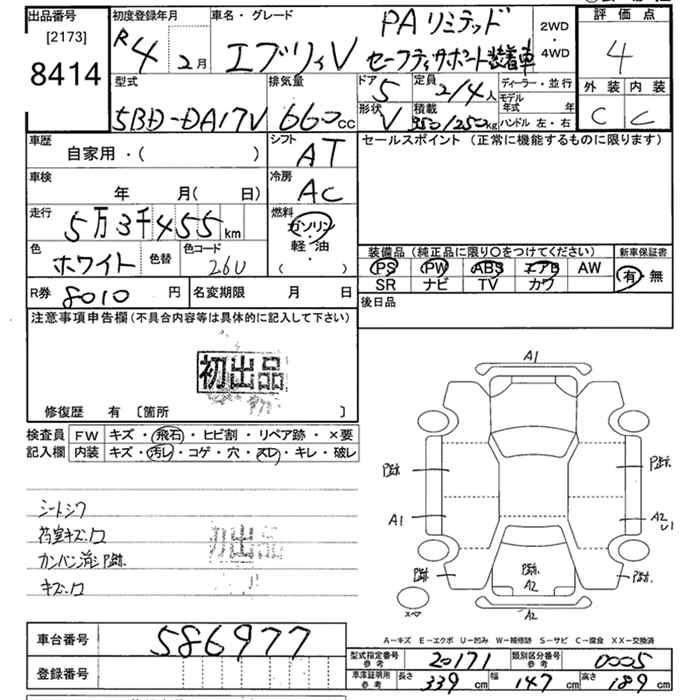 出品番号
[2173]
8414
初度登録年月
R4 年 2月
車名・グレード
PA リミテッド
エブリィV セーフティサポート装着車
2WD
・
4WD
評価点
4
外装 内装
C C
型式
5BD-DA17V
排気量
660cc
ドア
5
定員
2/4人
形状
V
積載
350/250kg
ディーラー・並行
モデル年式 年
ハンドル 左・右
車歴
自家用・( )
シフト
AT
セールスポイント (正常に機能するものに限ります)
車検
年 月( 日)
冷房
AC
走行
5万3千455km
燃料
ガソリン
・
軽・油
( )
色
ホワイト
色替
色コード
26U
装備品 (純正品に限り○をつけてください)
新車保証書
PS PW ABS エアB AW
SR ナビ TV カワ
有・無
R券 8010 円
名変期限 月 日
後日品
注意事項申告欄(不具合内容等は具体的に記入して下さい)
初出品
修復歴 有 [箇所 ]
検査員
記入欄
FW キズ・飛石・ヒビ割・リペア跡・×要
内装 キズ・汚レ・コゲ・穴・スレ・キレ・破レ
シートシワ
荷室キズ凹
カンバン消し P跡.
キズ凹
初出品
A1
P跡.
P跡.
A1
A2
U1
P跡.
P跡.
A2
P跡.
スペア
A2
A-キズ E-エクボ U-凹み W-補修跡 S-サビ C-腐食 XX-交換済
車台番号 586977
登録番号
型式指定番号
参考
20171
類別区分番号
参考
0005
車庫証明用
参考
長さ 339cm
幅 147cm
高さ 189cm